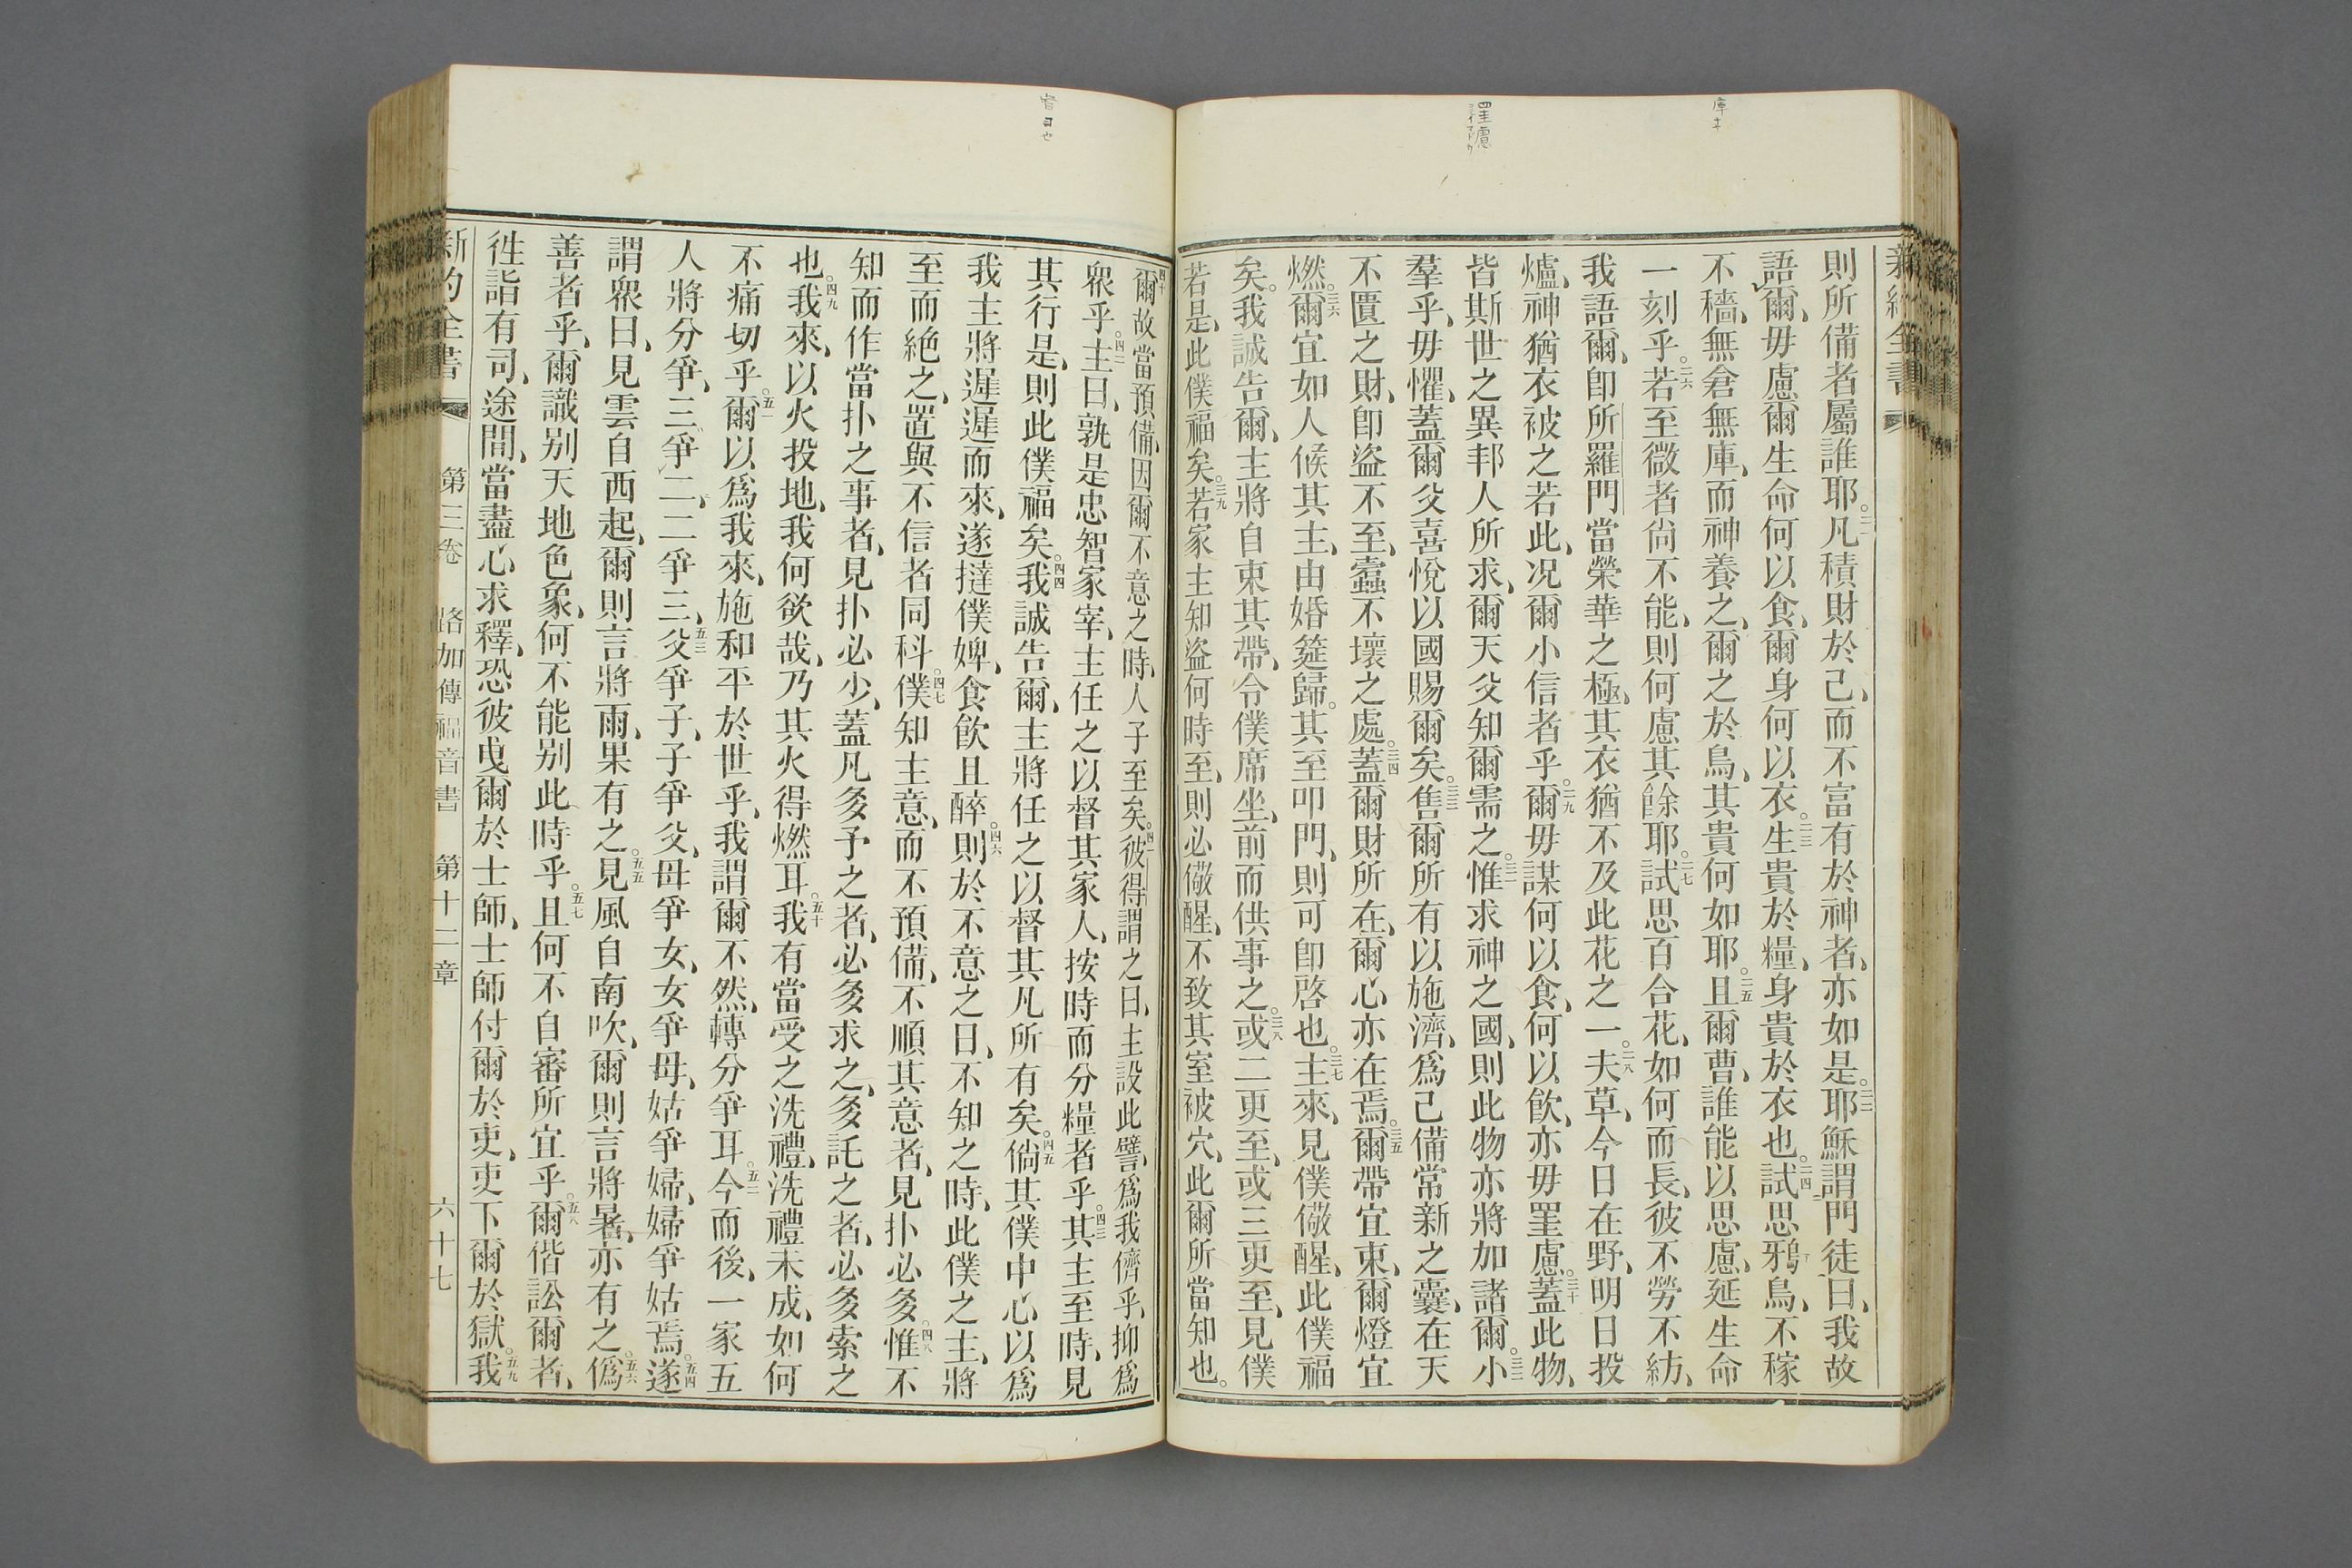 則所備者屬誰耶。二一凡積財於己、而不富有於神者、亦如是。二二耶穌謂門徒曰、我故
語爾、毋慮爾生命何以食、爾身何以衣。二三生貴於糧、身貴於衣也。二四試思鴉鳥、不稼
不穡、無倉無庫、而神養之、爾之於鳥、其貴何如耶。二五且爾曹、誰能以思慮、延生命
一刻乎。二六若至微者尙不能、則何慮其餘耶。二七試思百合花、如何而長、彼不勞不紡、
我語爾、卽所羅門當榮華之極、其衣猶不及此花之一。二八夫草、今日在野、明日投
爐、神猶衣被之若此、况爾小信者乎。二九爾毋謀何以食、何以飮、亦毋罣慮。三十蓋此物、
皆斯世之異邦人所求、爾天父知爾需之。三一惟求神之國、則此物亦將加諸爾。三二小
羣乎、毋懼、蓋爾父喜悅以國賜爾矣。三三售爾所有以施濟、爲己備常新之囊、在天
不匱之財、卽盜不至、蠹不壞之處。三四蓋爾財所在、爾心亦在焉。三五爾帶宜束、爾燈宜
燃。三六爾宜如人候其主、由婚筵歸。其至叩門、則可卽啓也。三七主來、見僕儆醒、此僕福
矣。我誠告爾、主將自束其帶、令僕席坐、前而供事之。三八或二更至、或三更至、見僕
若是、此僕福矣。三九若家主知盜何時至、則必儆醒、不致其室被穴、此爾所當知也。
四十爾故當預備、因爾不意之時、人子至矣。四一彼得謂之曰、主設此譬、爲我儕乎、抑爲
衆乎。四二主曰、孰是忠智家宰、主任之以督其家人、按時而分糧者乎。四三其主至時、見
其行是、則此僕福矣。四四我誠告爾、主將任之以督其凡所有矣。四五倘其僕中心以爲
我主將遲遲而來、遂撻僕婢、食飮且醉。四六則於不意之日、不知之時、此僕之主、將
至而絶之、置與不信者同科。四七僕知主意、而不預備、不順其意者、見扑必多。四八惟不
知而作當扑之事者、見扑必少、蓋凡多予之者、必多求之、多託之者、必多索之
也。四九我來、以火投地、我何欲哉、乃其火得燃耳。五十我有當受之洗禮、洗禮未成、如何
不痛切乎。五一爾以爲我來、施和平於世乎、我謂爾不然、轉分爭耳。五二今而後、一家五
人將分爭、三爭二、二爭三、五三父爭子、子爭父、母爭女、女爭母、姑爭婦、婦爭姑焉。五四遂
謂衆曰、見雲自西起、爾則言將雨、果有之。五五見風自南吹、爾則言將暑、亦有之。五六僞
善者乎、爾識别天地色象、何不能别此時乎。五七且何不自審所宜乎。五八爾偕訟爾者、
徃詣有司、途間、當盡心求釋、恐彼曳爾於士師、士師付爾於吏、吏下爾於獄。五九我
新約全書 第三卷 路加傳福音書 第十二章 六十七